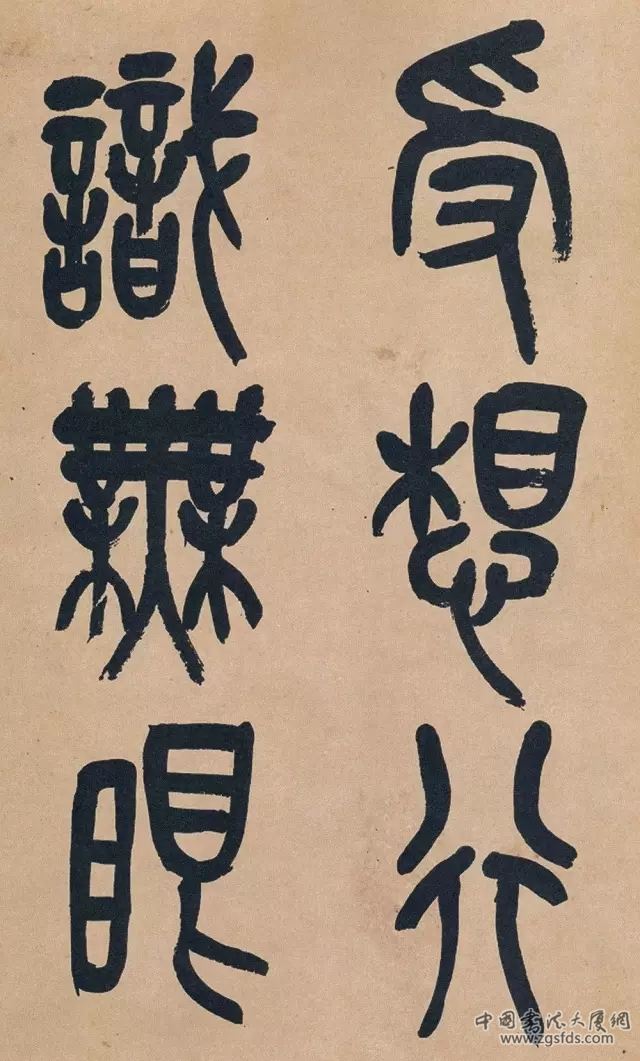 受想行
識無眼
中國書法大厦網
www.zgsfds.com